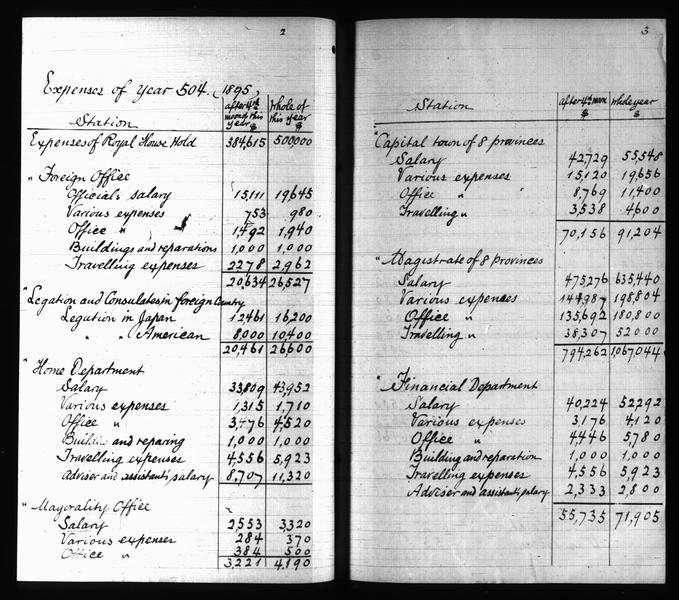 2
Expenses of Year 504. (1895)
Station after 4th moon of this year $ Whole of this Year $
Expenses of Royal House Hold 384,615 500,000
" Foreign Office
Official's salary 15,111 19,645
Various expenses 753 980
Office " 1,492 1,940
Buildings and reparations 1,000 1,000
Travelling expenses 2278 2,962
20,634 26,527
" Legation and Consulates in foreign Country
Legation in Japan 12461 16,200
" " American 8,000 10,400
20,461 26600
" Home Department
Salary 33,809 43,952
Various expenses 1,315 1,710
Office " 3,476 4,520
and repairing 1,000 1,000
Travelling expenses 4,556 5,923
Adviser and assistants, salary 8,707 11,320
" Mayorality Office
Salary 2,553 3,320
Various expenses 284 370
Office " 384 500
3,221 4,190
3
Station after 4th moon $ Whole year $
" Capital town of 8 provinces
Salary 42,729 55,548
Various expenses 15,120 19,656
Office " 8,769 11,400
Travelling " 3,538 4600
70,156 91,204
" Magistrate of 8 provinces
Salary 475,276 635,440
Various expences 144,987 198,804
Office " 135,692 180,800
Travelling " 38,307 52000
794,262 1,067,044
" Financial Department
Salary 40,224 52,292
Various expenses 3,176 4,120
Office " 4446 5,780
Building and reparation 1,000 1,000
Travelling expenses 4,556 5,923
Adviser and assistants, salary 2,333 2,800
55,735 71,905